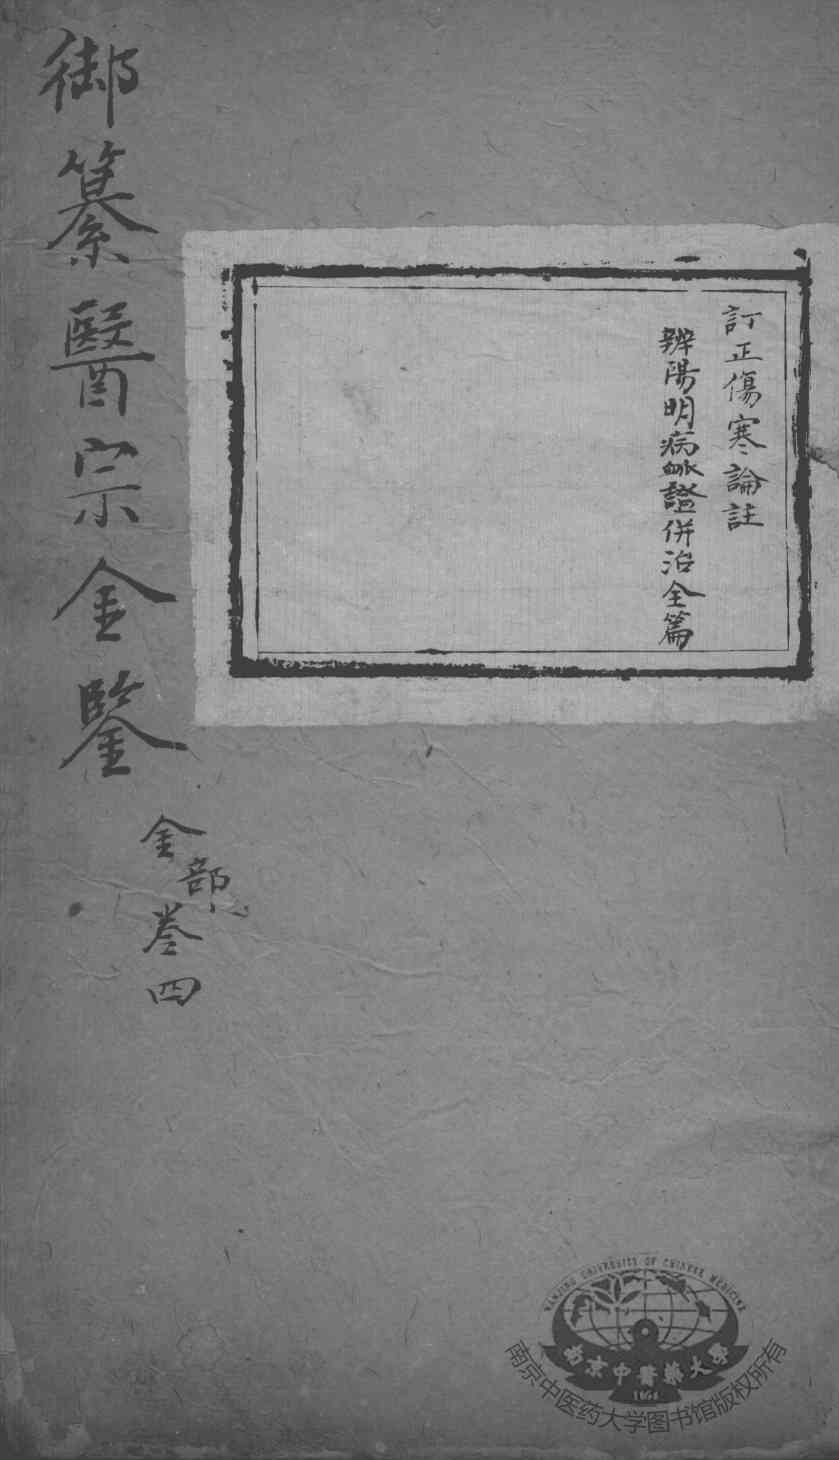 訂正傷寒論註
辨陽明病脉證併治全篇
御纂醫宗金鑒
金部
卷四
NANJING UNIVERSITY OF CHINESE MEDICINE
南京中醫藥大學
1954
南京中医药大学图书馆版权所有